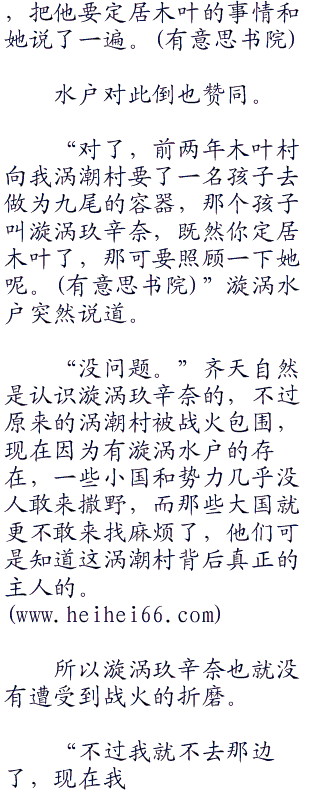 ，把他要定居木叶的事情和
她说了一遍。(有意思书院)
水户对此倒也赞同。
“对了，前两年木叶村
向我涡潮村要了一名孩子去
做为九尾的容器，那个孩子
叫漩涡玖辛奈，既然你定居
木叶了，那可要照顾一下她
呢。(有意思书院)”漩涡水
户突然说道。
“没问题。”齐天自然
是认识漩涡玖辛奈的，不过
原来的涡潮村被战火包围，
现在因为有漩涡水户的存
在，一些小国和势力几乎没
人敢来撒野，而那些大国就
更不敢来找麻烦了，他们可
是知道这涡潮村背后真正的
主人的。
(www.heihei66.com)
所以漩涡玖辛奈也就没
有遭受到战火的折磨。
“不过我就不去那边
了，现在我